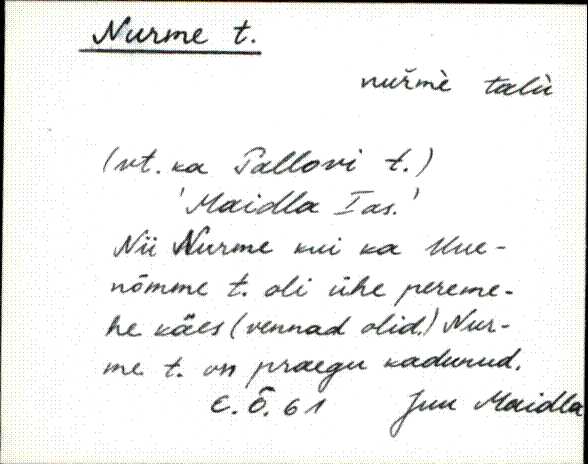 Nurme t.
nuřmè talù
(vt. ka Pallovi t.)
'Maidla I as.'
Nii Nurme kui ka Uue-
nõmme t. oli ühe pereme-
he käes (vennad olid.) Nur-
me t. on praegu kadunud.
E. Õ. 61 Juu Maidla